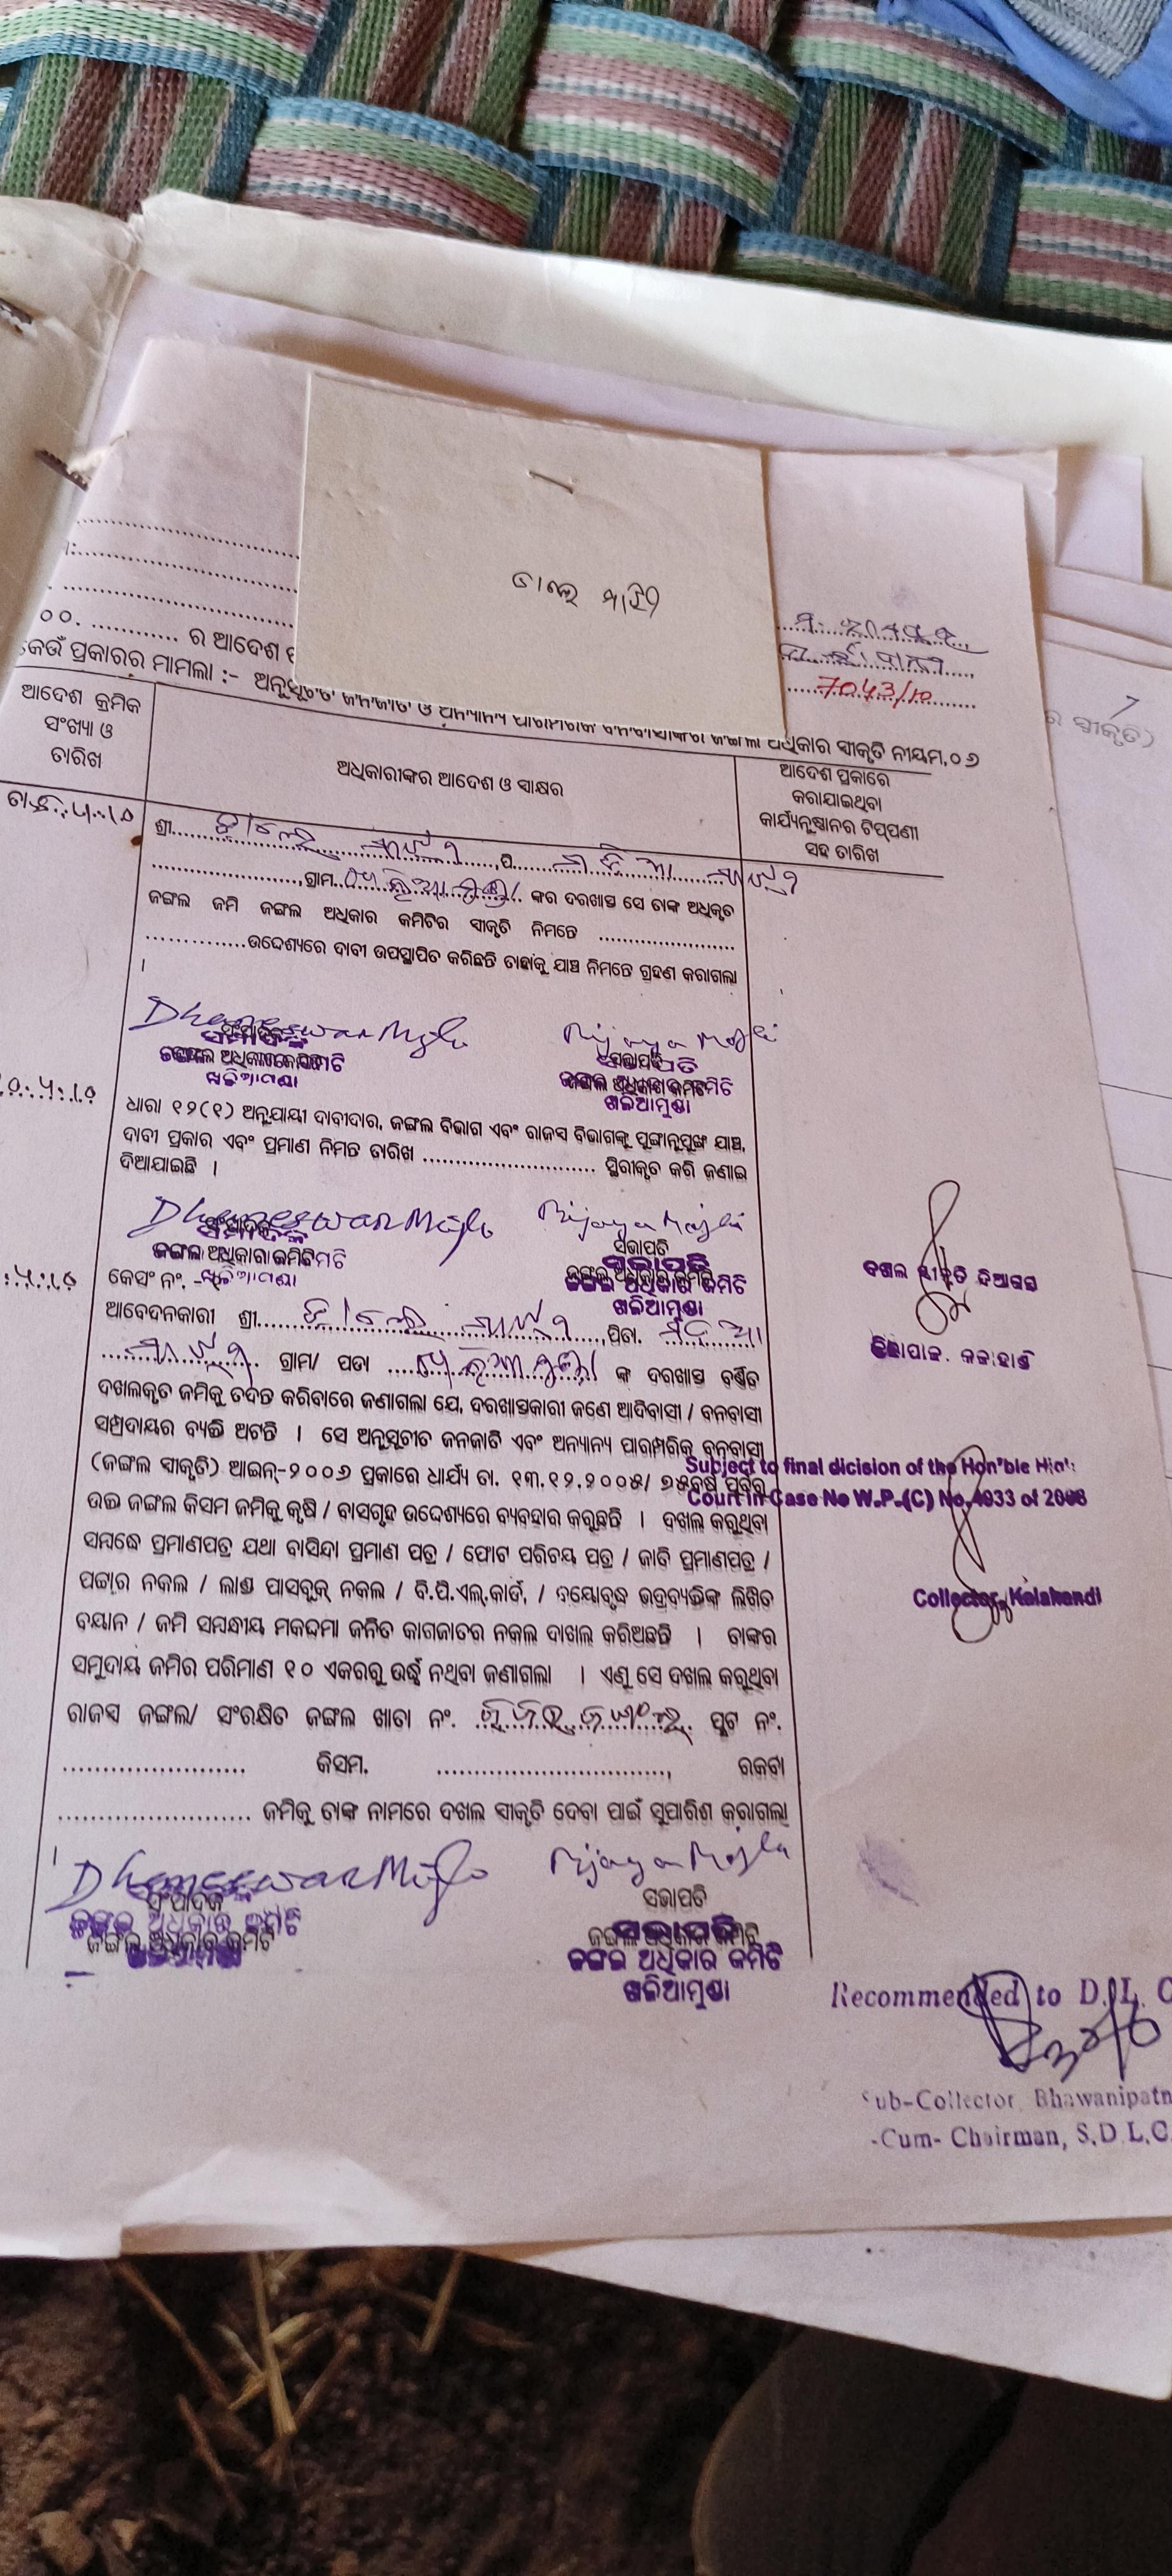 ୦୦. ............ ର ଆଦେଶ
7043/10
କେଉଁ ପ୍ରକାରର ମାମଲା :- ଅନୁସୂଚିତ ଜନଜାତି ଓ ଅନ୍ୟାନ୍ୟ ପାରମ୍ପରିକ ବନବାସୀଙ୍କର ଜଙ୍ଗଲ ଅଧିକାର ସ୍ୱୀକୃତି ନୀୟମ,୦୬
ଆଦେଶ କ୍ରମିକ
ସଂଖ୍ୟା ଓ
ତାରିଖ
ଅଧିକାରୀଙ୍କର ଆଦେଶ ଓ ସ୍ୱାକ୍ଷର
ଆଦେଶ ପ୍ରକାରେ
କରାଯାଇଥିବା
କାର୍ଯ୍ୟାନୁଷ୍ଠାନର ଟିପ୍ପଣୀ
ସହ ତାରିଖ
ଶ୍ରୀ
ପି
ଗ୍ରାମ ଙ୍କର ଦରଖାସ୍ତ ସେ ତାଙ୍କ ଅଧିକୃତ
ଜଙ୍ଗଲ ଜମି ଜଙ୍ଗଲ ଅଧିକାର କମିଟିର ସ୍ୱୀକୃତି ନିମନ୍ତେ .......................
..............ଉଦ୍ଦେଶ୍ୟରେ ଦାବୀ ଉପସ୍ଥାପିତ କରିଛନ୍ତି ତାହାକୁ ଯାଞ୍ଚ ନିମନ୍ତେ ଗ୍ରହଣ କରାଗଲା
।
Dhaneswar Majhi
Bijaya Majhi
ସଂପାଦକ
ସଭାପତି
ଜଙ୍ଗଲ ଅଧିକାର କମିଟି
ଜଙ୍ଗଲ ଅଧିକାର କମିଟି
ଖଳିଆମୁଣ୍ଡା
ଖଳିଆମୁଣ୍ଡା
ଧାରା ୧୨(୧) ଅନୁଯାୟୀ ଦାବୀଦାର, ଜଙ୍ଗଲ ବିଭାଗ ଏବଂ ରାଜସ୍ୱ ବିଭାଗଙ୍କୁ ପୁଙ୍ଖାନୁପୁଙ୍ଖ ଯାଞ୍ଚ,
ଦାବୀ ପ୍ରକାର ଏବଂ ପ୍ରମାଣ ନିମନ୍ତେ ତାରିଖ ............................ ସ୍ଥିରୀକୃତ କରି ଜଣାଇ
ଦିଆଯାଇଛି ।
Dhaneswar Majhi
Bijaya Majhi
ସଂପାଦକ
ସଭାପତି
ଜଙ୍ଗଲ ଅଧିକାର କମିଟି
ଜଙ୍ଗଲ ଅଧିକାର କମିଟି
ଖଳିଆମୁଣ୍ଡା
ଖଳିଆମୁଣ୍ଡା
ଦଖଲ ସ୍ୱୀକୃତି ଦିଆଗଲା
ଜିଲ୍ଲାପାଳ, କଳାହାଣ୍ଡି
କେସଂ ନଂ. -
ଆବେଦନକାରୀ ଶ୍ରୀ ପିତା.
ଗ୍ରାମ/ ପଡା ଙ୍କ ଦରଖାସ୍ତ ବର୍ଣ୍ଣିତ
ଦଖଲକୃତ ଜମିକୁ ତଦନ୍ତ କରିବାରେ ଜଣାଗଲା ଯେ, ଦରଖାସ୍ତକାରୀ ଜଣେ ଆଦିବାସୀ / ବନବାସୀ
ସମ୍ପ୍ରଦାୟର ବ୍ୟକ୍ତି ଅଟନ୍ତି । ସେ ଅନୁସୂଚୀତ ଜନଜାତି ଏବଂ ଅନ୍ୟାନ୍ୟ ପାରମ୍ପରିକ ବନବାସୀ
(ଜଙ୍ଗଲ ସ୍ୱୀକୃତି) ଆଇନ୍-୨୦୦୬ ପ୍ରକାରେ ଧାର୍ଯ୍ୟ ତା. ୧୩.୧୨.୨୦୦୫/ ୭୫ବର୍ଷ ପୂର୍ବରୁ
ଉକ୍ତ ଜଙ୍ଗଲ କିସମ ଜମିକୁ କୃଷି / ବାସଗୃହ ଉଦ୍ଦେଶ୍ୟରେ ବ୍ୟବହାର କରୁଛନ୍ତି । ଦଖଲ କରୁଥିବା
ସମ୍ବନ୍ଧେ ପ୍ରମାଣପତ୍ର ଯଥା ବାସିନ୍ଦା ପ୍ରମାଣ ପତ୍ର / ଫୋଟ ପରିଚୟ ପତ୍ର / ଜାତି ପ୍ରମାଣପତ୍ର /
ପଟ୍ଟାର ନକଲ / ଲାଣ୍ଡ ପାସବୁକ୍ ନକଲ / ବି.ପି.ଏଲ୍.କାର୍ଡ, / ବୟୋବୃଦ୍ଧ ଭଦ୍ରବ୍ୟକ୍ତିଙ୍କ ଲିଖିତ
ବୟାନ / ଜମି ସମ୍ବନ୍ଧୀୟ ମକଦ୍ଦମା ଜନିତ କାଗଜାତର ନକଲ ଦାଖଲ କରିଅଛନ୍ତି । ତାଙ୍କର
ସମୁଦାୟ ଜମିର ପରିମାଣ ୧୦ ଏକରରୁ ଊର୍ଦ୍ଧ୍ୱ ନଥିବା ଜଣାଗଲା । ଏଣୁ ସେ ଦଖଲ କରୁଥିବା
ରାଜସ୍ୱ ଜଙ୍ଗଲ/ ସଂରକ୍ଷିତ ଜଙ୍ଗଲ ଖାତା ନଂ. ପ୍ଲଟ ନଂ.
....................... କିସମ. ............................., ରକବା
........................ ଜମିକୁ ତାଙ୍କ ନାମରେ ଦଖଲ ସ୍ୱୀକୃତି ଦେବା ପାଇଁ ସୁପାରିଶ କରାଗଲା
।
Subject to final dicision of the Hon'ble High
Court in Case No W.P.(C) No.4933 of 2008
Collector, Kalahandi
Dhaneswar Majhi
Bijaya Majhi
ସଂପାଦକ
ସଭାପତି
ଜଙ୍ଗଲ ଅଧିକାର କମିଟି
ଜଙ୍ଗଲ ଅଧିକାର କମିଟି
ଖଳିଆମୁଣ୍ଡା
Recommended to D.L.C
Sub-Collector, Bhawanipatn
-Cum- Chairman, S.D.L.C.